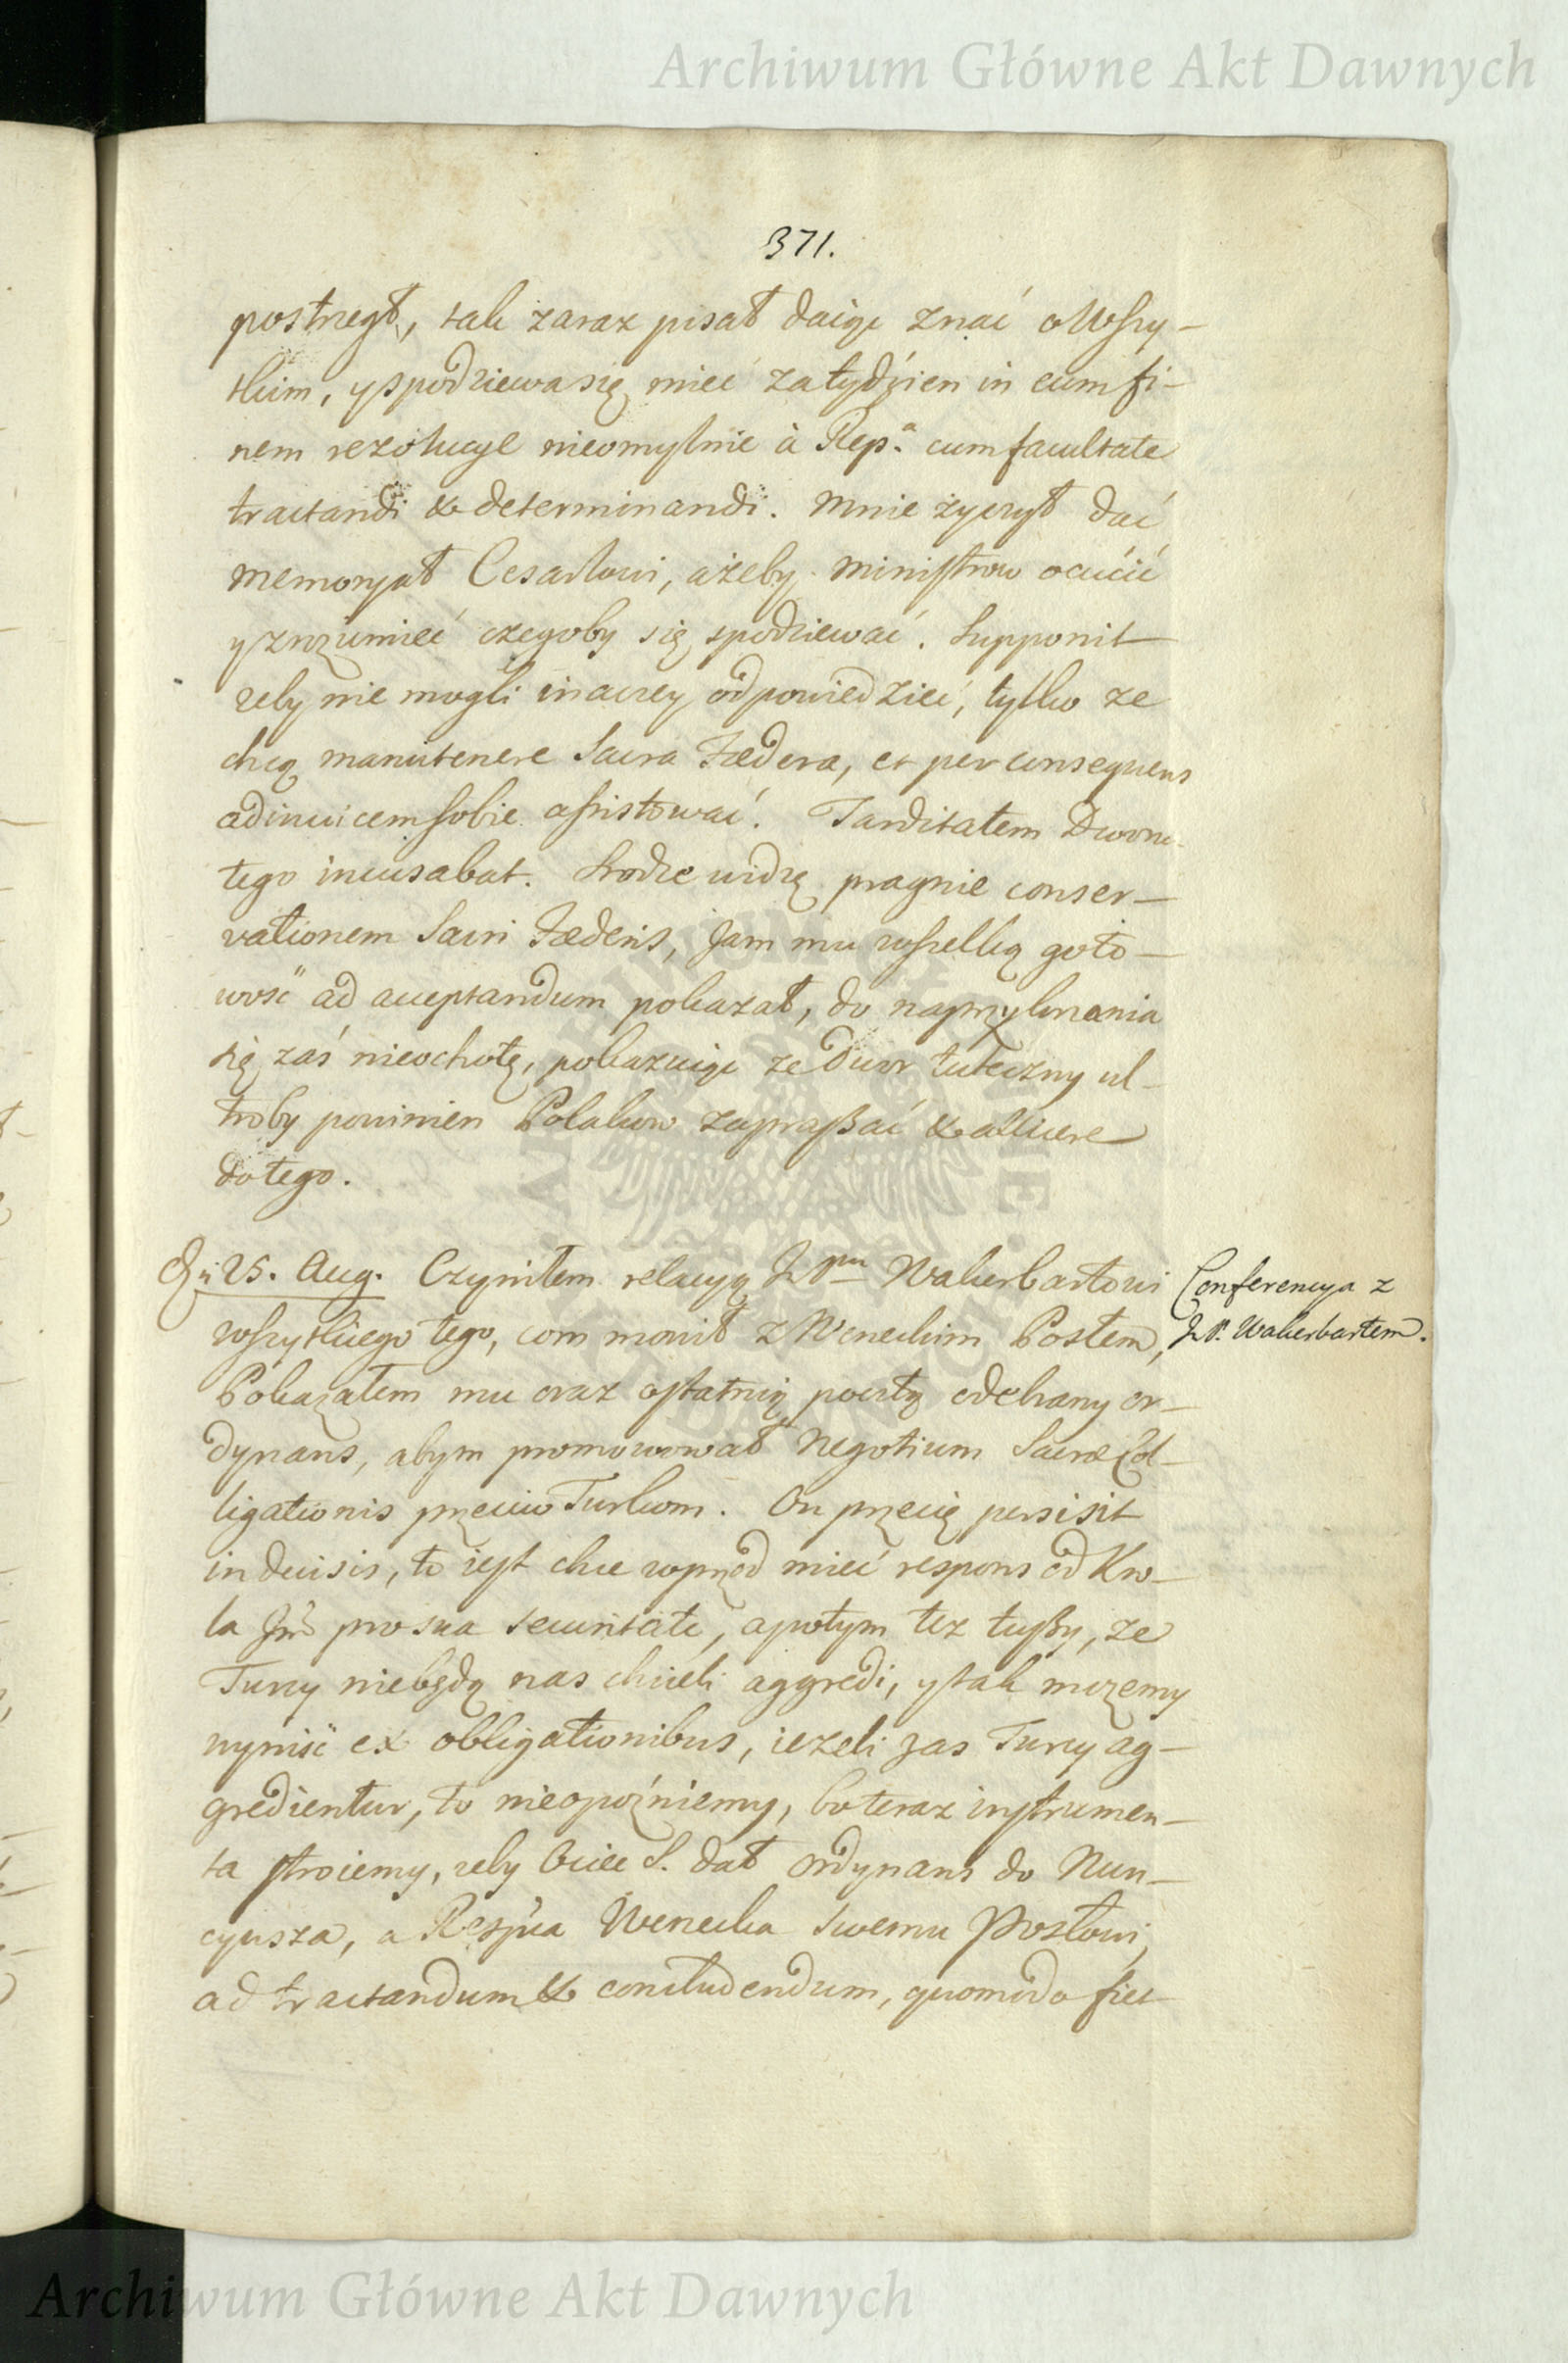 Archiwum Główne Akt Dawnych
371.
postrzegł, tak zaraz pisał daiąc znać o Wszy-
stkim, y spodziewa się mieć za tydźien in eum fi-
nem rezolucye nieomylnie à Rep.ᵃ cum facultate
tractandi & determinandi. Mnie życzył dać
memoryał Cesarzowi, ażeby Ministrow ocucić
y zrozumieć czegoby się spodziewać. Supponit
zeby nie mogli inaczey odpowiedzieć, tylko ze
chcą manutenere Sacra Fædera, et per consequens
adinvicem sobie assistować. Tarditatem Dworu
tego incusabat. Srodze widzę pragnie conser-
vationem Sacri Fæderis, Jam mu wszelką goto-
wość ad acceptandum pokazał, do naprzykrzania
się zaś nieochotę, pokazuiąc ze dwor tuteczny ul-
troby powinien Polakow zapraszać & allicere
do tego.
25. Aug. Czyniłem relacyą JP Wakerbartowi
wszytkiego tego, com mowił z Weneckim Posłem,
Pokazałem mu oraz ostatnią pocztą odebrany or-
dynans, abym promowował Negotium Sacræ Col-
ligationis przeciw Turkom. On przecię persistit
in decisis, to iest chce wprzod mieć respons od Kro-
la Jm̃ pro sua securitate, a potym tez tuszy, ze
Turcy niebędą nas chcieli aggredi, y tak mozemy
wyniść ex obligationibus, iezeli zas Turcy ag-
gredientur, to nieopoźniemy, bo teraz instrumen-
ta stroiemy, zeby Ociec S. dał Ordynans do Nun-
cyusza, a Respĩca Wenecka swemu Posłowi,
ad tractandum & concludendum, quomodo fiet
Conferencya z
JP. Wakerbartem.
Archiwum Główne Akt Dawnych